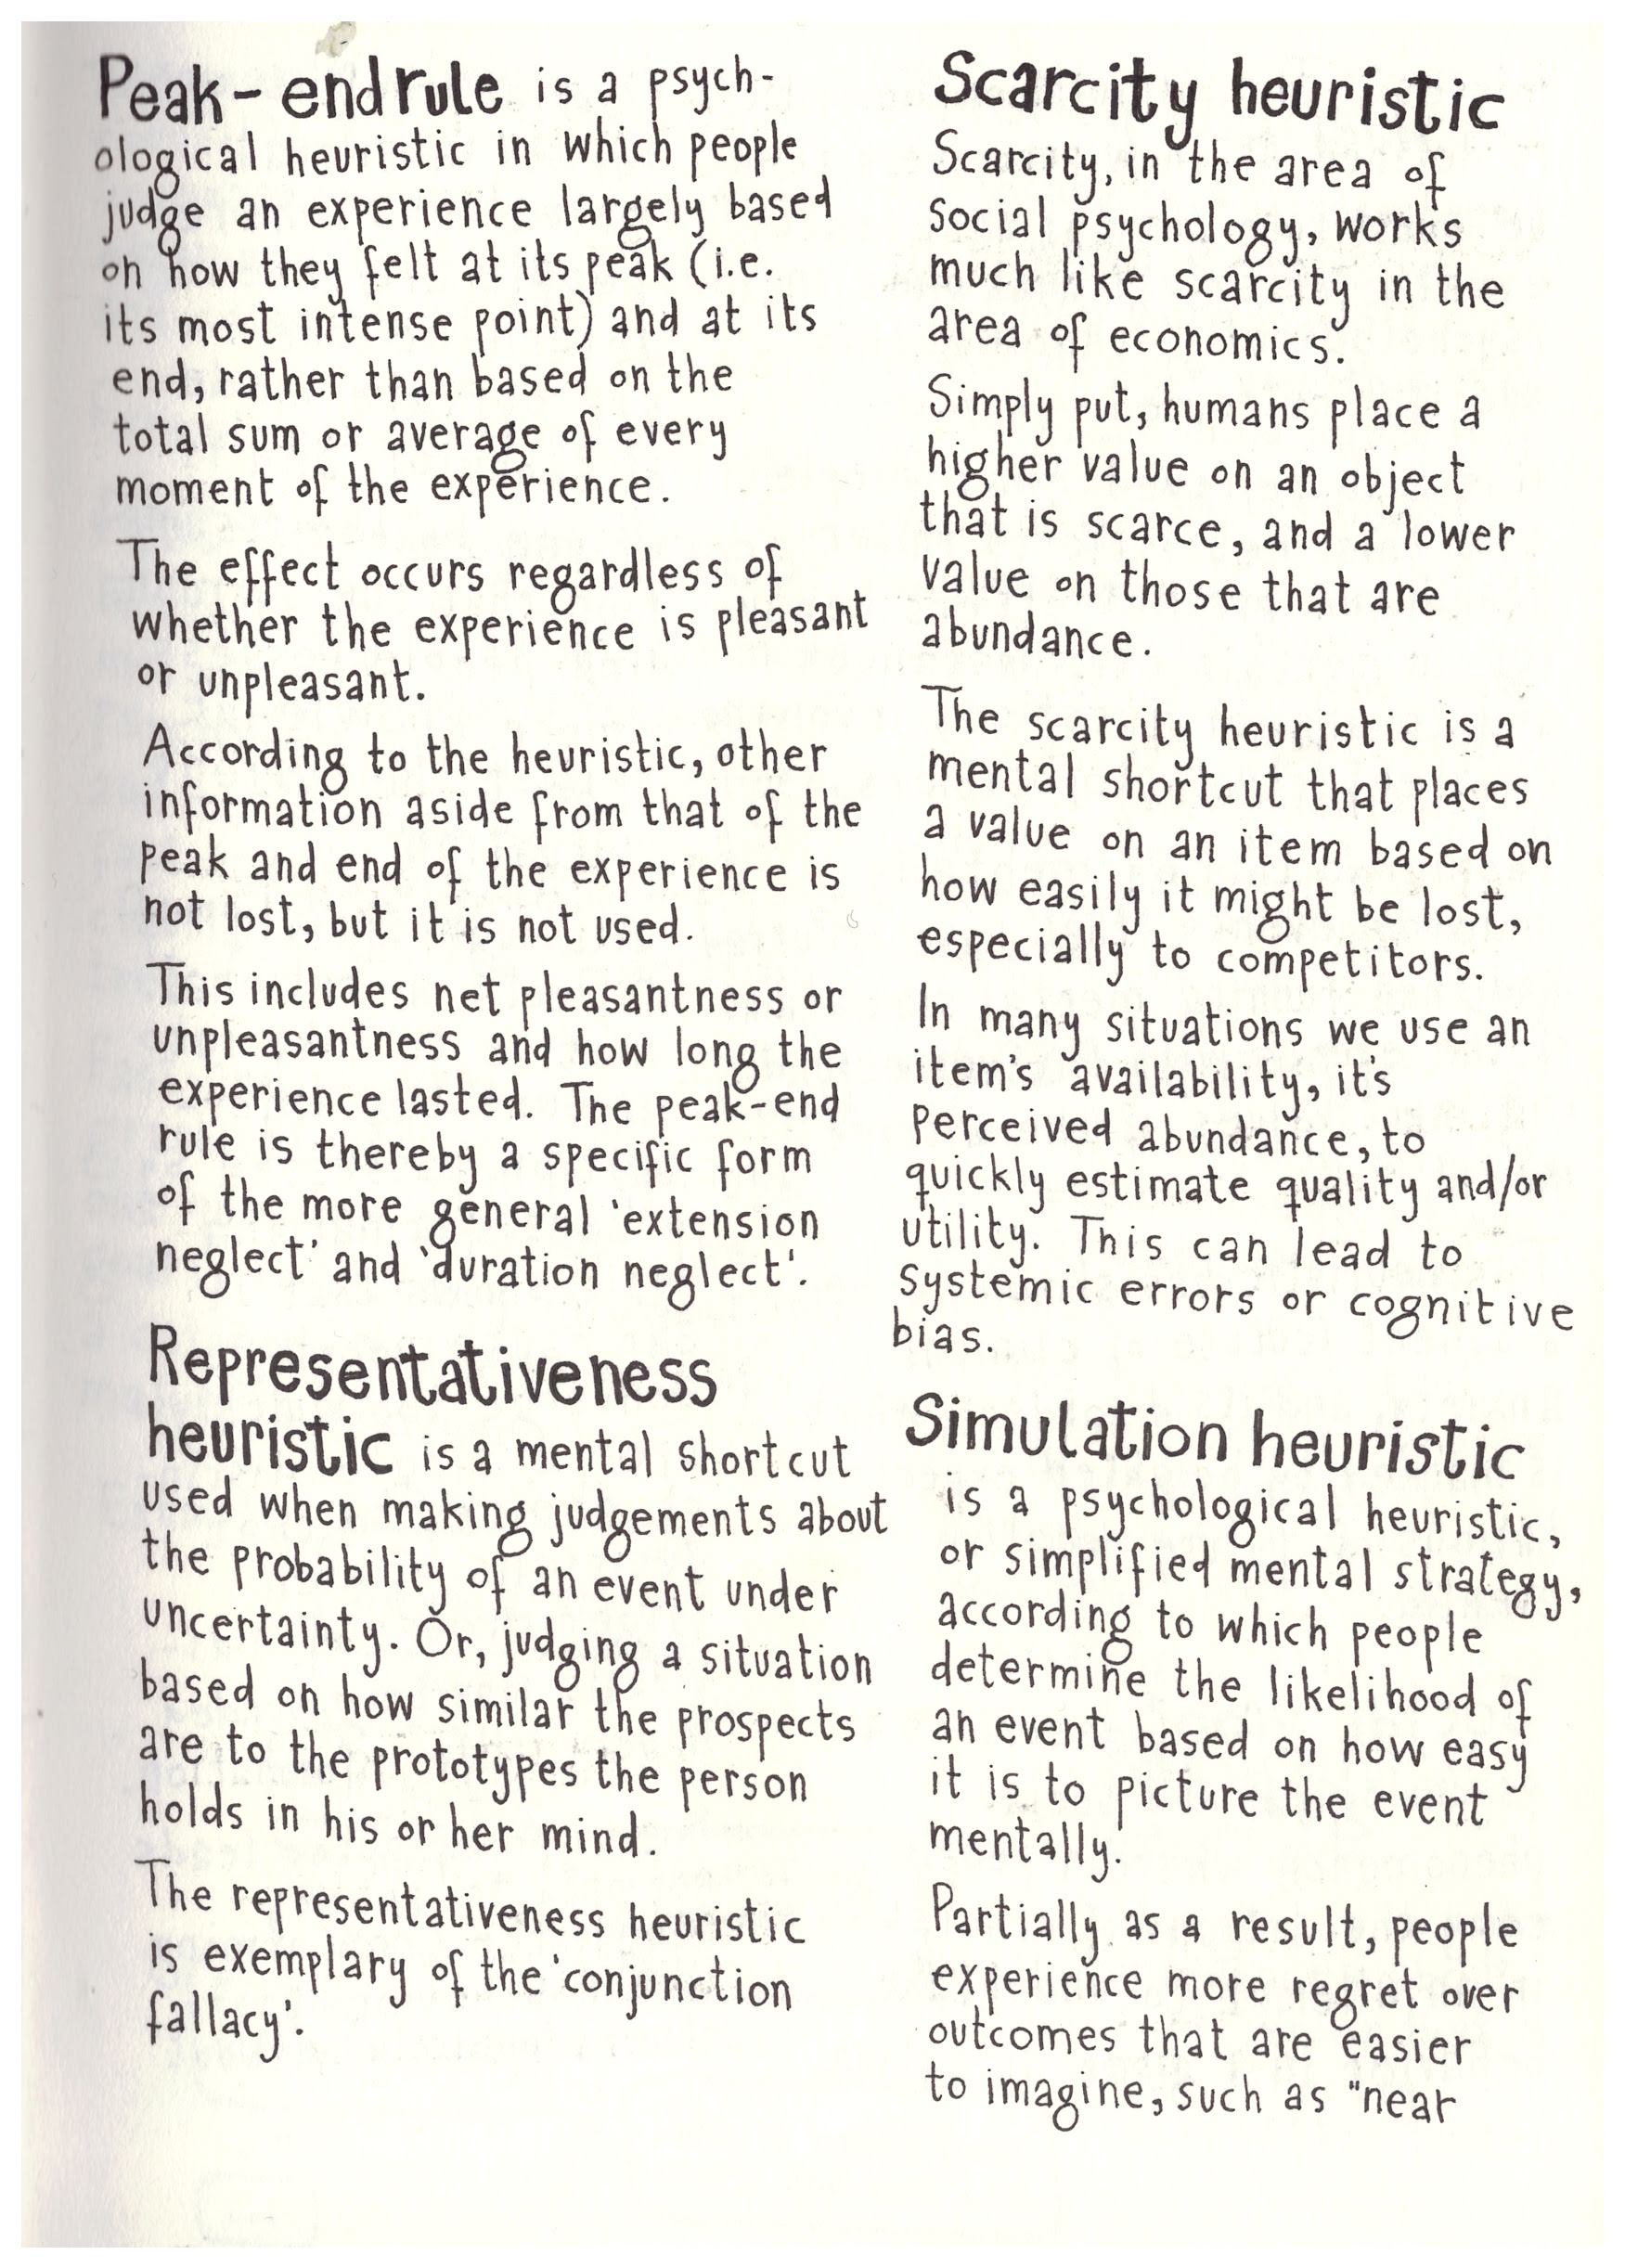 Peak-end rule is a psych-
ological heuristic in which people
judge an experience largely based
on how they felt at its peak (i.e.
its most intense point) and at its
end, rather than based on the
total sum or average of every
moment of the experience.
The effect occurs regardless of
whether the experience is pleasant
or unpleasant.
According to the heuristic, other
information aside from that of the
peak and end of the experience is
not lost, but it is not used.
This includes net pleasantness or
unpleasantness and how long the
experience lasted. The peak-end
rule is thereby a specific form
of the more general 'extension
neglect' and 'duration neglect'.
Representativeness
heuristic is a mental shortcut
used when making judgements about
the probability of an event under
uncertainty. Or, judging a situation
based on how similar the prospects
are to the prototypes the person
holds in his or her mind.
The representativeness heuristic
is exemplary of the 'conjunction
fallacy'.
Scarcity heuristic
Scarcity, in the area of
social psychology, works
much like scarcity in the
area of economics.
Simply put, humans place a
higher value on an object
that is scarce, and a lower
value on those that are
abundance.
The scarcity heuristic is a
mental shortcut that places
a value on an item based on
how easily it might be lost,
especially to competitors.
In many situations we use an
item's availability, it's
perceived abundance, to
quickly estimate quality and/or
utility. This can lead to
systemic errors or cognitive
bias.
Simulation heuristic
is a psychological heuristic,
or simplified mental strategy,
according to which people
determine the likelihood of
an event based on how easy
it is to picture the event
mentally.
Partially as a result, people
experience more regret over
outcomes that are easier
to imagine, such as "near